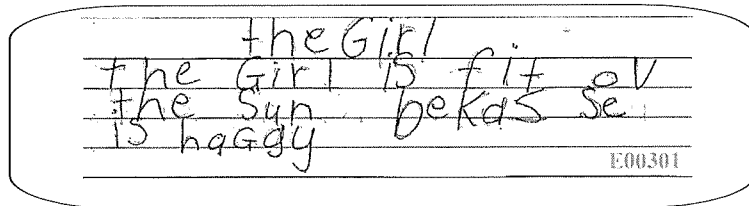 the Girl
the Girl is fit ov
the Sun bekas se
is haggy
E00301